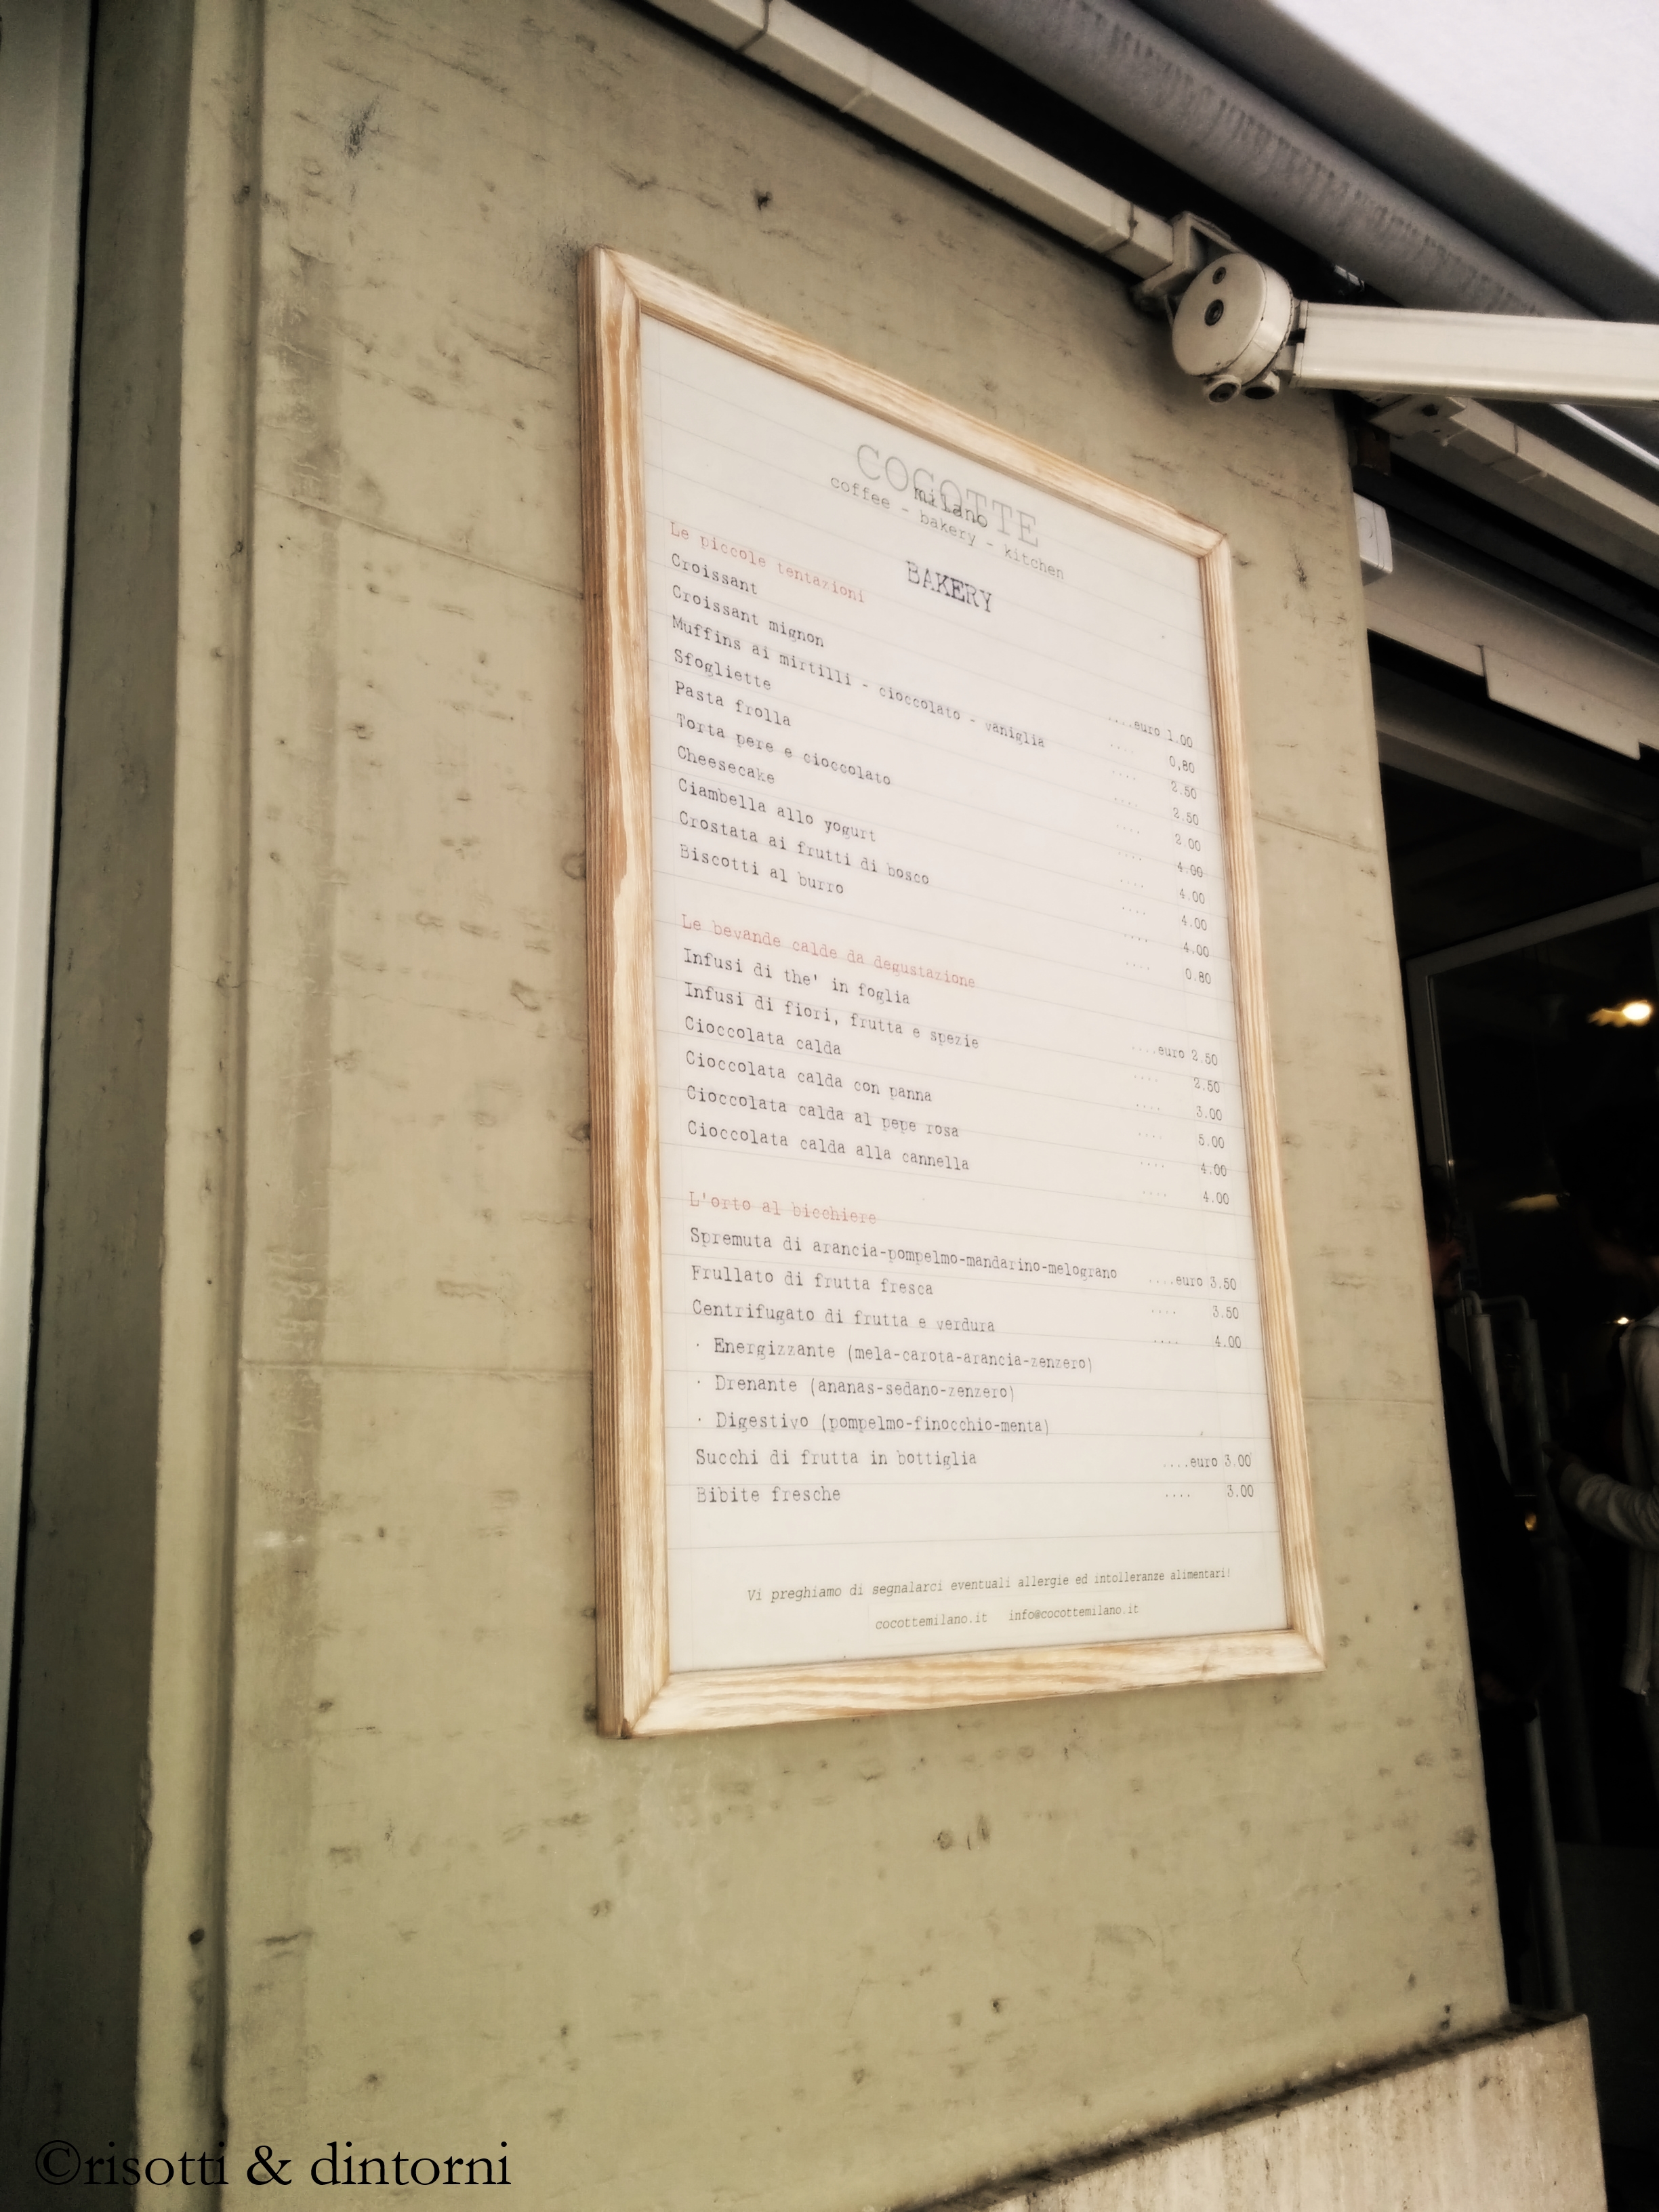 COCOTTE
milano
coffee - bakery - kitchen
BAKERY
Le piccole tentazioni
Croissant ....euro 1.00
Croissant mignon .... 0,80
Muffins ai mirtilli - cioccolato - vaniglia .... 2.50
Sfogliette .... 2.50
Pasta frolla .... 2.00
Torta pere e cioccolato .... 4.00
Cheesecake .... 4.00
Ciambella allo yogurt .... 4.00
Crostata ai frutti di bosco .... 4.00
Biscotti al burro .... 0.80
Le bevande calde da degustazione
Infusi di the' in foglia ....euro 2.50
Infusi di fiori, frutta e spezie .... 2.50
Cioccolata calda .... 3.00
Cioccolata calda con panna .... 5.00
Cioccolata calda al pepe rosa .... 4.00
Cioccolata calda alla cannella .... 4.00
L'orto al bicchiere
Spremuta di arancia-pompelmo-mandarino-melograno ....euro 3.50
Frullato di frutta fresca .... 3.50
Centrifugato di frutta e verdura .... 4.00
· Energizzante (mela-carota-arancia-zenzero)
· Drenante (ananas-sedano-zenzero)
· Digestivo (pompelmo-finocchio-menta)
Succhi di frutta in bottiglia ....euro 3.00
Bibite fresche .... 3.00
Vi preghiamo di segnalarci eventuali allergie ed intolleranze alimentari!
cocottemilano.it info@cocottemilano.it
©risotti & dintorni